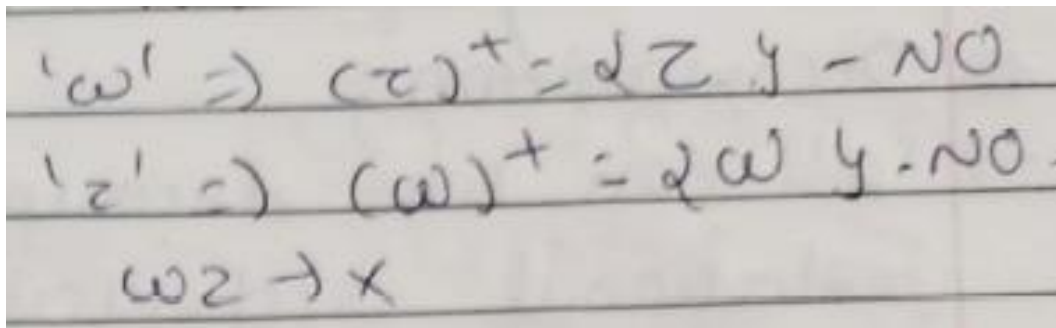 'w' => (z)+ = {z} - NO
'z' => (w)+ = {w} - NO.
wz → x